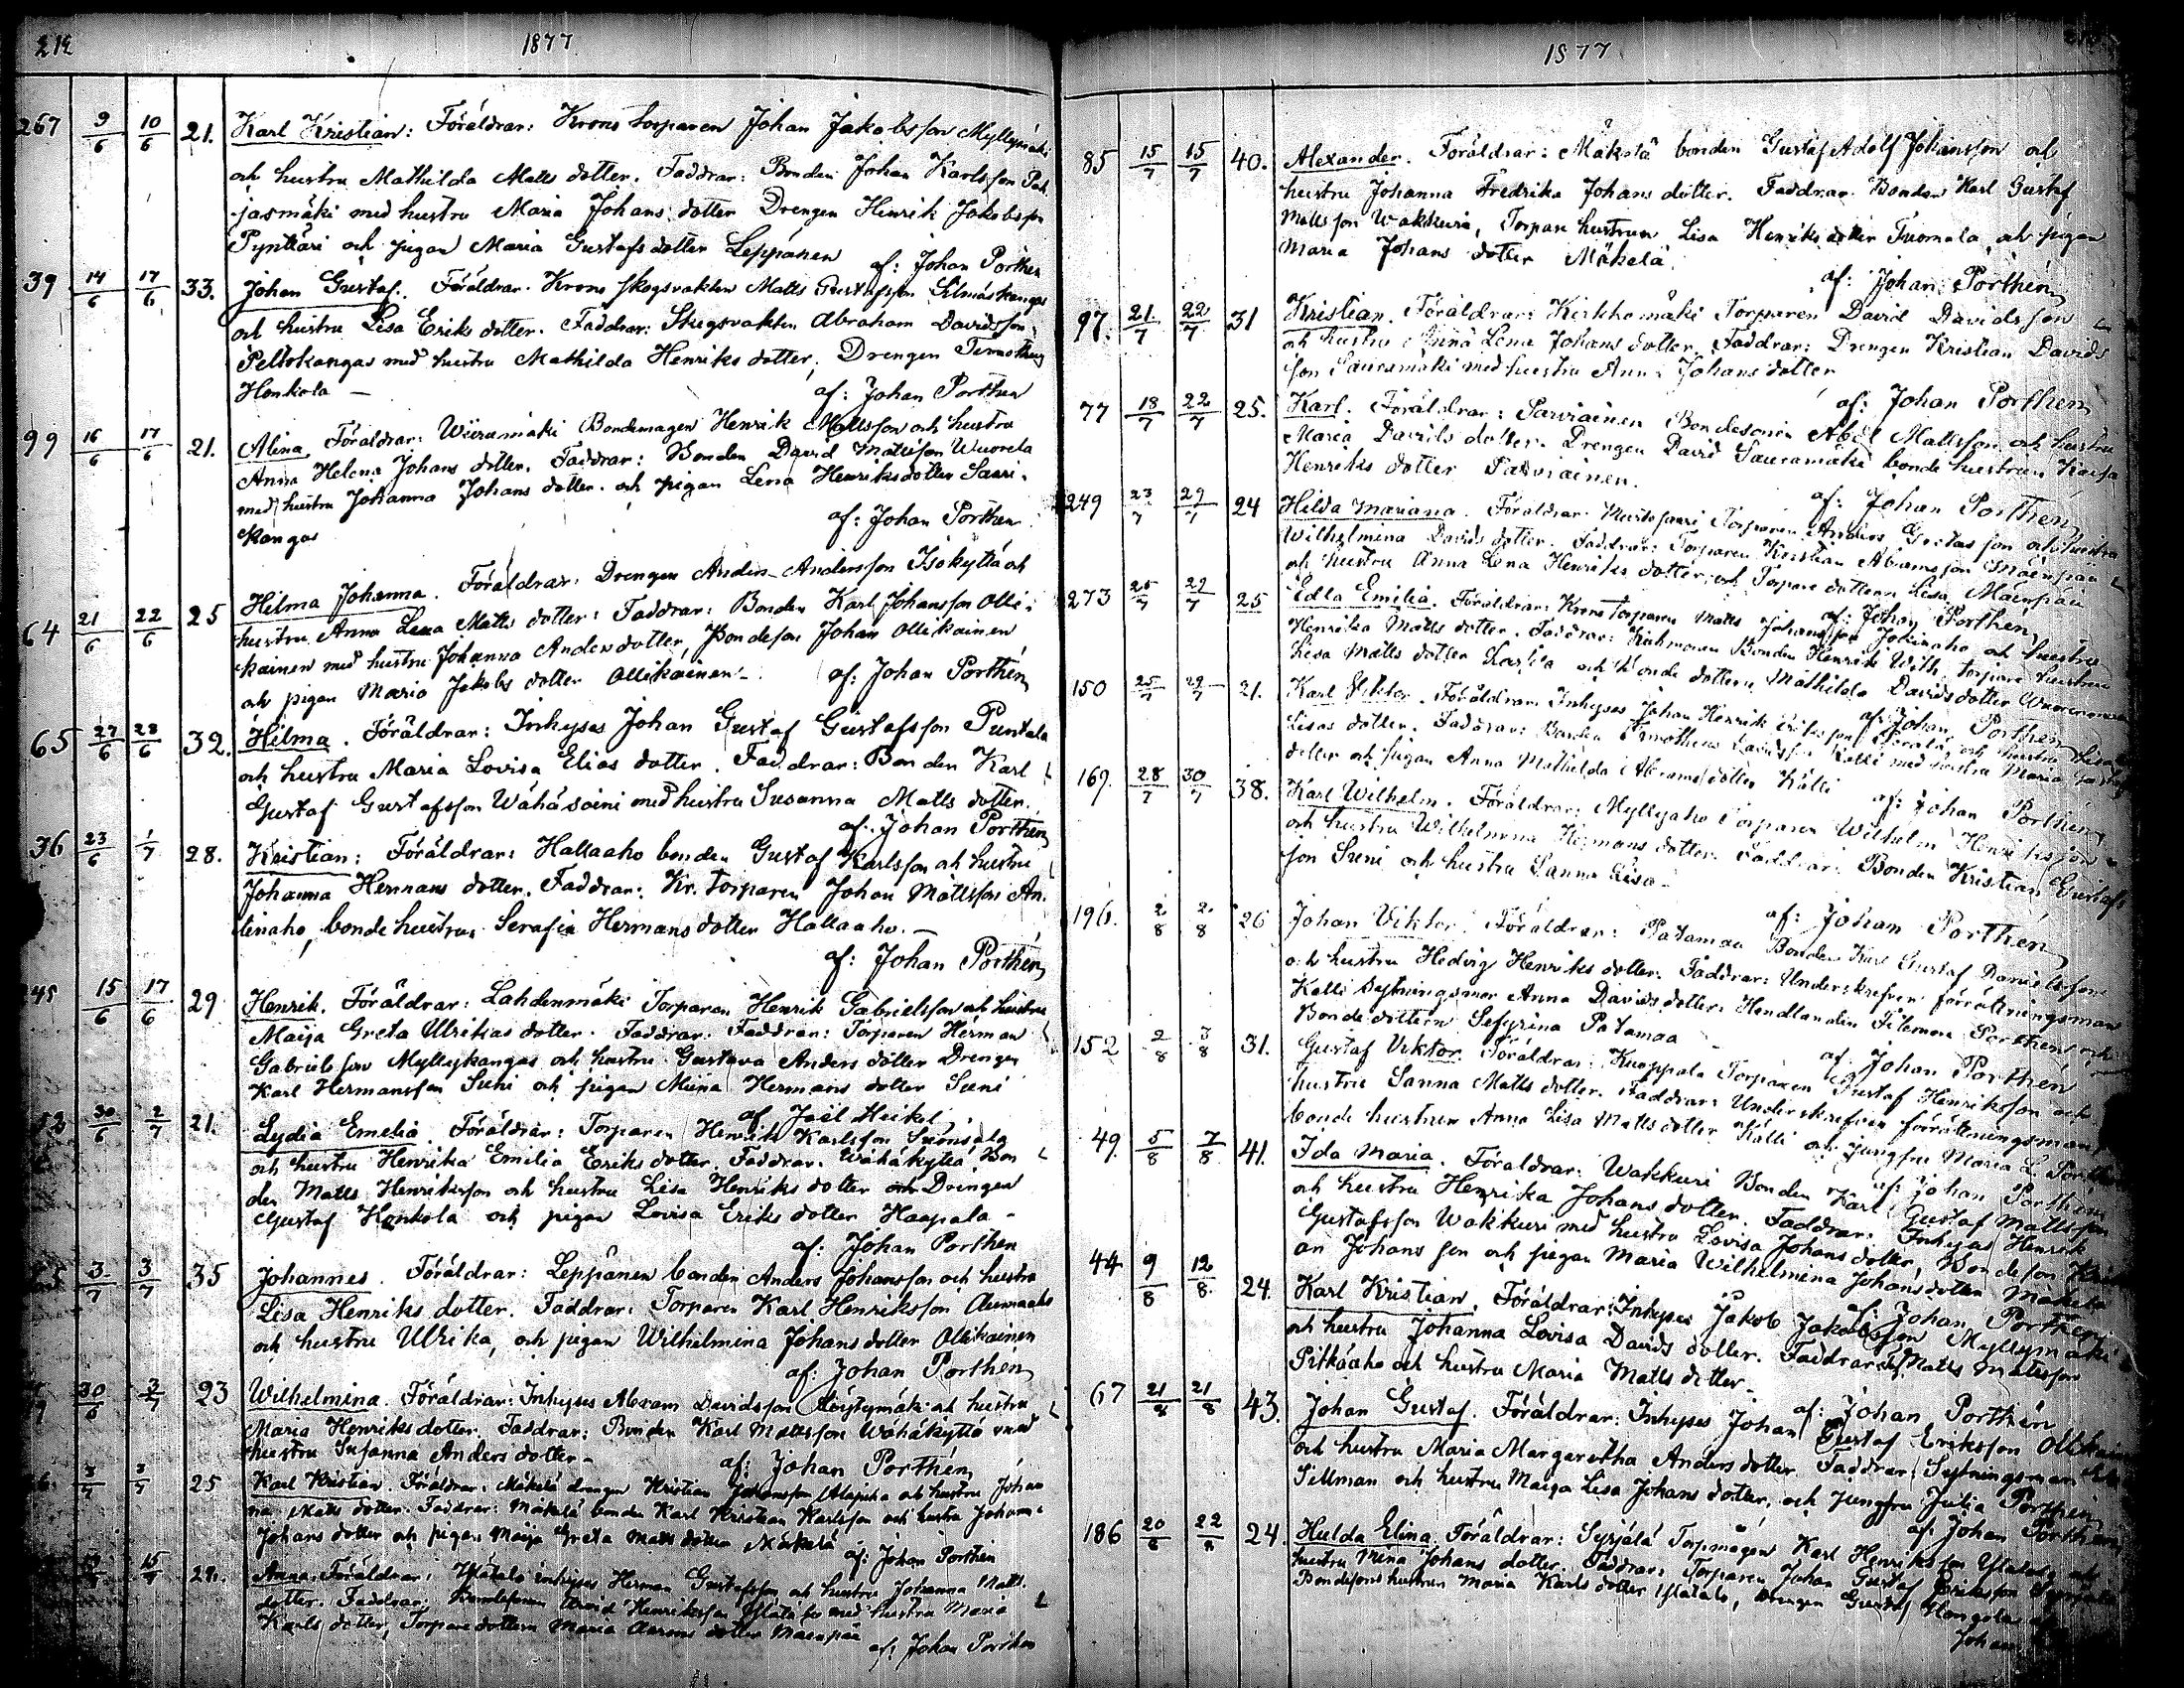 212 1877
267 9/6 10/6 21. Karl Kristian: Föräldrar: Krono torparen Johan Jakobsson Myllymäki
och hustru Mathilda Matts dotter. Faddrar: Bonden Johan Karlsson
jasmäki med hustru Maria Johans dotter Drengen Henrik Jakobsson
Pynttäri och pigan Maria Gustafs dotter Leppänen
af: Johan Porthén
39 14/6 17/6 33. Johan Gustaf. Föräldrar. Krono skogsvakten Matts Gustafsson
och hustru Lisa Eriks dotter. Faddrar: Skogsvakten Abraham Davidsson
Peltokangas med hustru Mathilda Henriks dotter, Drengen Timotheus
Honkola —
af: Johan Porthen
99 16/6 17/6 21. Alina. Föräldrar: Wiiramäki Bondemagen Henrik Mattsson och hustru
Anna Helena Johans dotter. Faddrar: Bonden David Mattsson Wuorela
med hustru Johanna Johans dotter. och pigan Lena Henriksdotter Saari-
kangas
af: Johan Porthen
64 21/6 22/6 25 Hilma Johanna. Föräldrar: Drengen Anders Andersson Isokyttä och
hustru Anna Lena Matts dotter: Faddrar: Bonden Karl Johansson Olli-
kainen med hustru Johanna Anders dotter, Bondeson Johan Ollikainen
och pigan Maria Jakobs dotter Ollikainen -
af: Johan Porthén
65 27/6 28/6 32. Hilma. Föräldrar: Inhyses Johan Gustaf Gustafsson Puntala
och hustru Maria Lovisa Elias dotter. Faddrar: Bonden Karl
Gustaf Gustafsson Wähäsöini med hustru Susanna Matts dotter.
af: Johan Porthen
36 23/6 1/7 28. Kristian: Föräldrar: Hallaaho bonden Gustaf Karlsson och hustru
Johanna Hermans dotter. Faddrar: Kr. torparen Johan Mattsson An-
tinaho, bonde hustrun Serafia Hermans dotter Hallaaho. —
af: Johan Porthén
245 15/6 17/6 29 Henrik. Föräldrar: Lahdenmäki Torparen Henrik Gabrielsson och hustru
Maija Greta Ulrikas dotter. Faddrar. Faddrar: Torparen Herman
Gabrielsson Myllykangas och hustru Gustava Anders dotter Drengen
Karl Hermansson Suni och pigan Miina Hermans dotter Suni
af Joël Heikel
30/6 2/7 21. Lydia Emelia. Föräldrar: Torparen Henrik Karlsson
och hustru Henrika Emilia Eriks dotter. Faddrar. Wähäkyttä Bon
den Matts Henriksson och hustru Lisa Henriks dotter Drengen
Gustaf Honkola och pigan Lovisa Eriks dotter Haapala -
af: Johan Porthen
3/7 3/7 35 Johannes. Föräldrar: Leppänen bonden Anders Johansson och hustru
Lisa Henriks dotter. Faddrar: Torparen Karl Henriksson
och hustru Ulrika, och pigan Wilhelmina Johans dotter Ollikainen
af: Johan Porthen
30/6 3/7 23 Wilhelmina. Föräldrar: Inhyses Abram Davidsson Köykymäki och hustru
Maria Henriks dotter. Faddrar: Bonden Karl Mattsson Wähäkyttä med
hustru Susanna Anders dotter -
af: Johan Porthén
3/7 3/7 25 Karl Kristian. Föräldrar. Mäkelä drengen Kristian Johansson och hustru Johan
na Matts dotter. Faddrar: Mäkelä bonden Karl Kristian Karlsson och hustru Johanna
Johans dotter och pigan Maija Greta Matts dotter Mäkelä
af: Johan Porthén
15/7 Anna. Föräldrar: inhyses Herman Gustafsson och hustru Johanna Matts-
dotter. Faddrar: Henriksson med hustru Maria
Karls dotter, Torpare dottern Maria Aarons dotter Mäenpää
af: Johan Porthen
1877
85 15/7 15/7 40. Alexander. Föräldrar: Mäkelä bonden Gustaf Adolf Johansson och
hustru Johanna Fredrika Johans dotter. Faddrar. Bonden Karl Gustaf
Mattsson Wakkuri, Torpare hustrun Lisa Henriks dotter Tuomala, och pigan
Maria Johans dotter Mäkelä.
af: Johan Porthén
97. 21/7 22/7 31 Kristian. Föräldrar: Kirkkomäki Torparen David Davidsson
och hustru Anna Lena Johans dotter. Faddrar: Drengen Kristian Davids
son Sauramäki med hustru Anna Johans dotter
af: Johan Porthén
77 18/7 22/7 25. Karl. Föräldrar: Parviainen Bondesonen Abel Mattsson och hustru
Maria Davids dotter. Drengen David Sauramäki bonde hustrun Kaisa
Henriks dotter Parviainen.
af: Johan Porthén
249 23/7 29/7 24 Hilda Mariana. Föräldrar. Torparen Anders Gustafsson och hustru
Wilhelmina Davids dotter. Faddrar: Torparen Kristian Abramsson Mäenpää
och hustru Anna Lena Henriks dotter, och Torpare dottern Lisa Mäenpää
af: Johan Porthen
273 25/7 29/7 25 Edla Emilia. Föräldrar: Krono Torparen Matts Johansson Jokinaho och hustru
Henrika Matts dotter. Faddrar: Bonden Henrik With. torpare hustrun
Lisa Matts dotter och Bonde dottern Mathilda Davids dotter
af: Johan Porthen
150 25/7 29/7 21. Karl Viktor. Föräldrar: Inhyses Johan Henrik Eriksson och hustru Lisa
Lisas dotter. Faddrar: Bonden Timotheus Davidsson Källi med hustru Maria Gustafs
dotter och pigan Anna Mathilda Abrams dotter Källi
af: Johan Porthén
169. 28/7 30/7 38. Karl Wilhelm. Föräldrar: Myllyaho Torparen Wilhelm Henriksson
och hustru Wilhelmina Hermans dotter. Faddrar: Bonden Kristian Gustafs
son Suni och hustru Sanna Lisa -
af: Johan Porthén
196. 2/8 2/8 26 Johan Viktor. Föräldrar: Patamaa Bonden Karl Gustaf Danielsson
och hustru Hedvig Henriks dotter. Faddrar: Underskrefven förrättningsman
Källi Sytningsmor Anna Davids dotter. Handlanden Filemon Porthen och
Bonde dottern Sefyrina Patamaa
af. Johan Porthén
152 2/8 3/8 31. Gustaf Viktor. Föräldrar: Knappala Torparen Gustaf Henriksson och
hustru Sanna Matts dotter. Faddrar: Underskrefven förrättningsman,
bonde hustrun Anna Lisa Matts dotter Källi och jungfru Maria L.
af: Johan Porthén
49. 5/8 7/8 41. Ida Maria. Föräldrar: Wakkuri Bonden Karl Gustaf Mattsson
och hustru Henrika Johans dotter. Faddrar: Inhyses Henrik
Gustafsson Wakkuri med hustru Lovisa Johans dotter, Bondeson
an Johansson och pigan Maria Wilhelmina Johans dotter Mäkelä
af: Johan Porthén
44 9/8 12/8 24. Karl Kristian. Föräldrar: Inhyses Jakob Jakobsson Myllymäki
och hustru Johanna Lovisa Davids dotter. Faddrar: Matts Mattsson
Pitkäaho och hustru Maria Matts dotter -
af: Johan Porthén
67 21/8 21/8 43. Johan Gustaf. Föräldrar: Inhyses Johan Gustaf Eriksson
och hustru Maria Margaretha Anders dotter Faddrar: Sytningsman
Sillman och hustru Maija Lisa Johans dotter, och jungfru Julia Porthén
af: Johan Porthén
186 20/8 22/8 24. Hulda Elina. Föräldrar: Syrjälä Torpmågen Karl Henriksson och
hustru Mina Johans dotter. Faddrar: Torparen Johan Gustaf Eriksson Syrjälä
Bondesons hustrun Maria Karls dotter, Drengen Gustaf
Johan